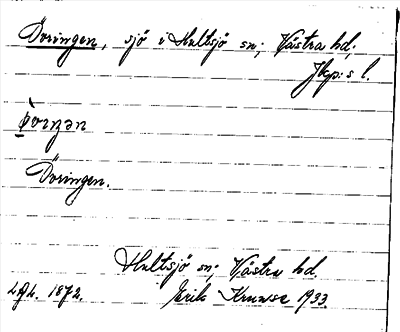 Döringen, sjö i Hultsjö sn; Västra hd;
Jkp:s l.
Döringen.
Hultsjö sn; Västra hd
1872. Erik Kruuse 1933.